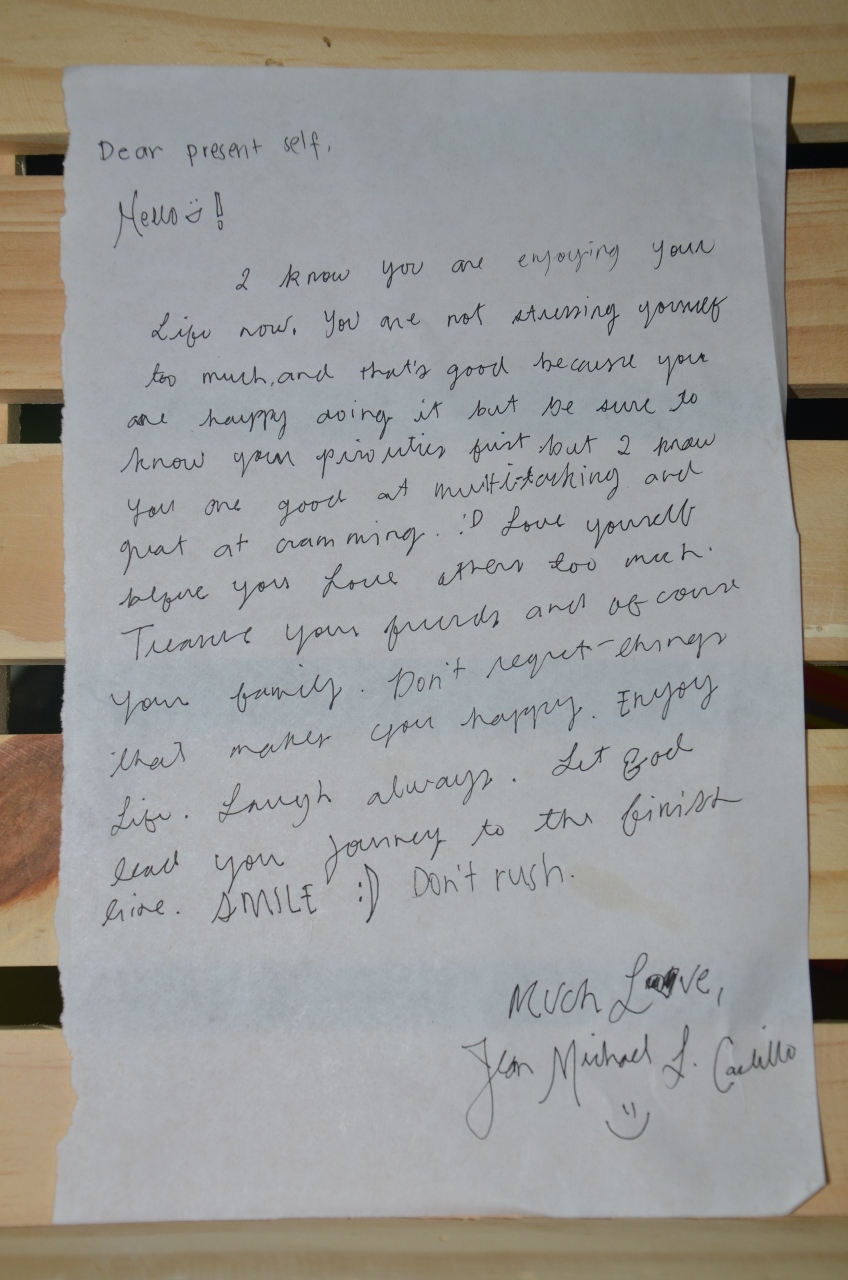 Dear present self,
Hello !
I know you are enjoying your
Life now. You are not stressing yourself
too much, and that's good because you
are happy doing it but be sure to
know your priorities first but I know
you are good at multi-tasking and
great at cramming. :D Love yourself
before you Love others too much.
Treasure your friends and of course
your family. Don't regret things
that makes you happy. Enjoy
Life. Laugh always. Let God
lead you journey to the finish
line. SMILE :D Don't rush.
Much Love,
Jean Michael L.